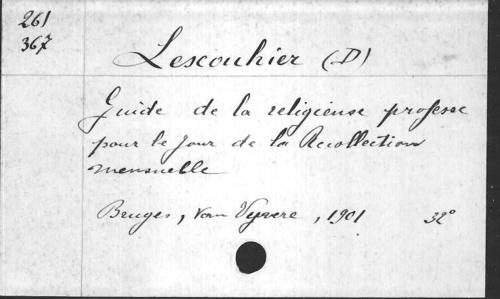 261
367
Lescouhier (D)
Guide de la religieuse professe
pour le jour de la Recollection
mensuelle
Bruges, Van Vyvere, 1901 32°